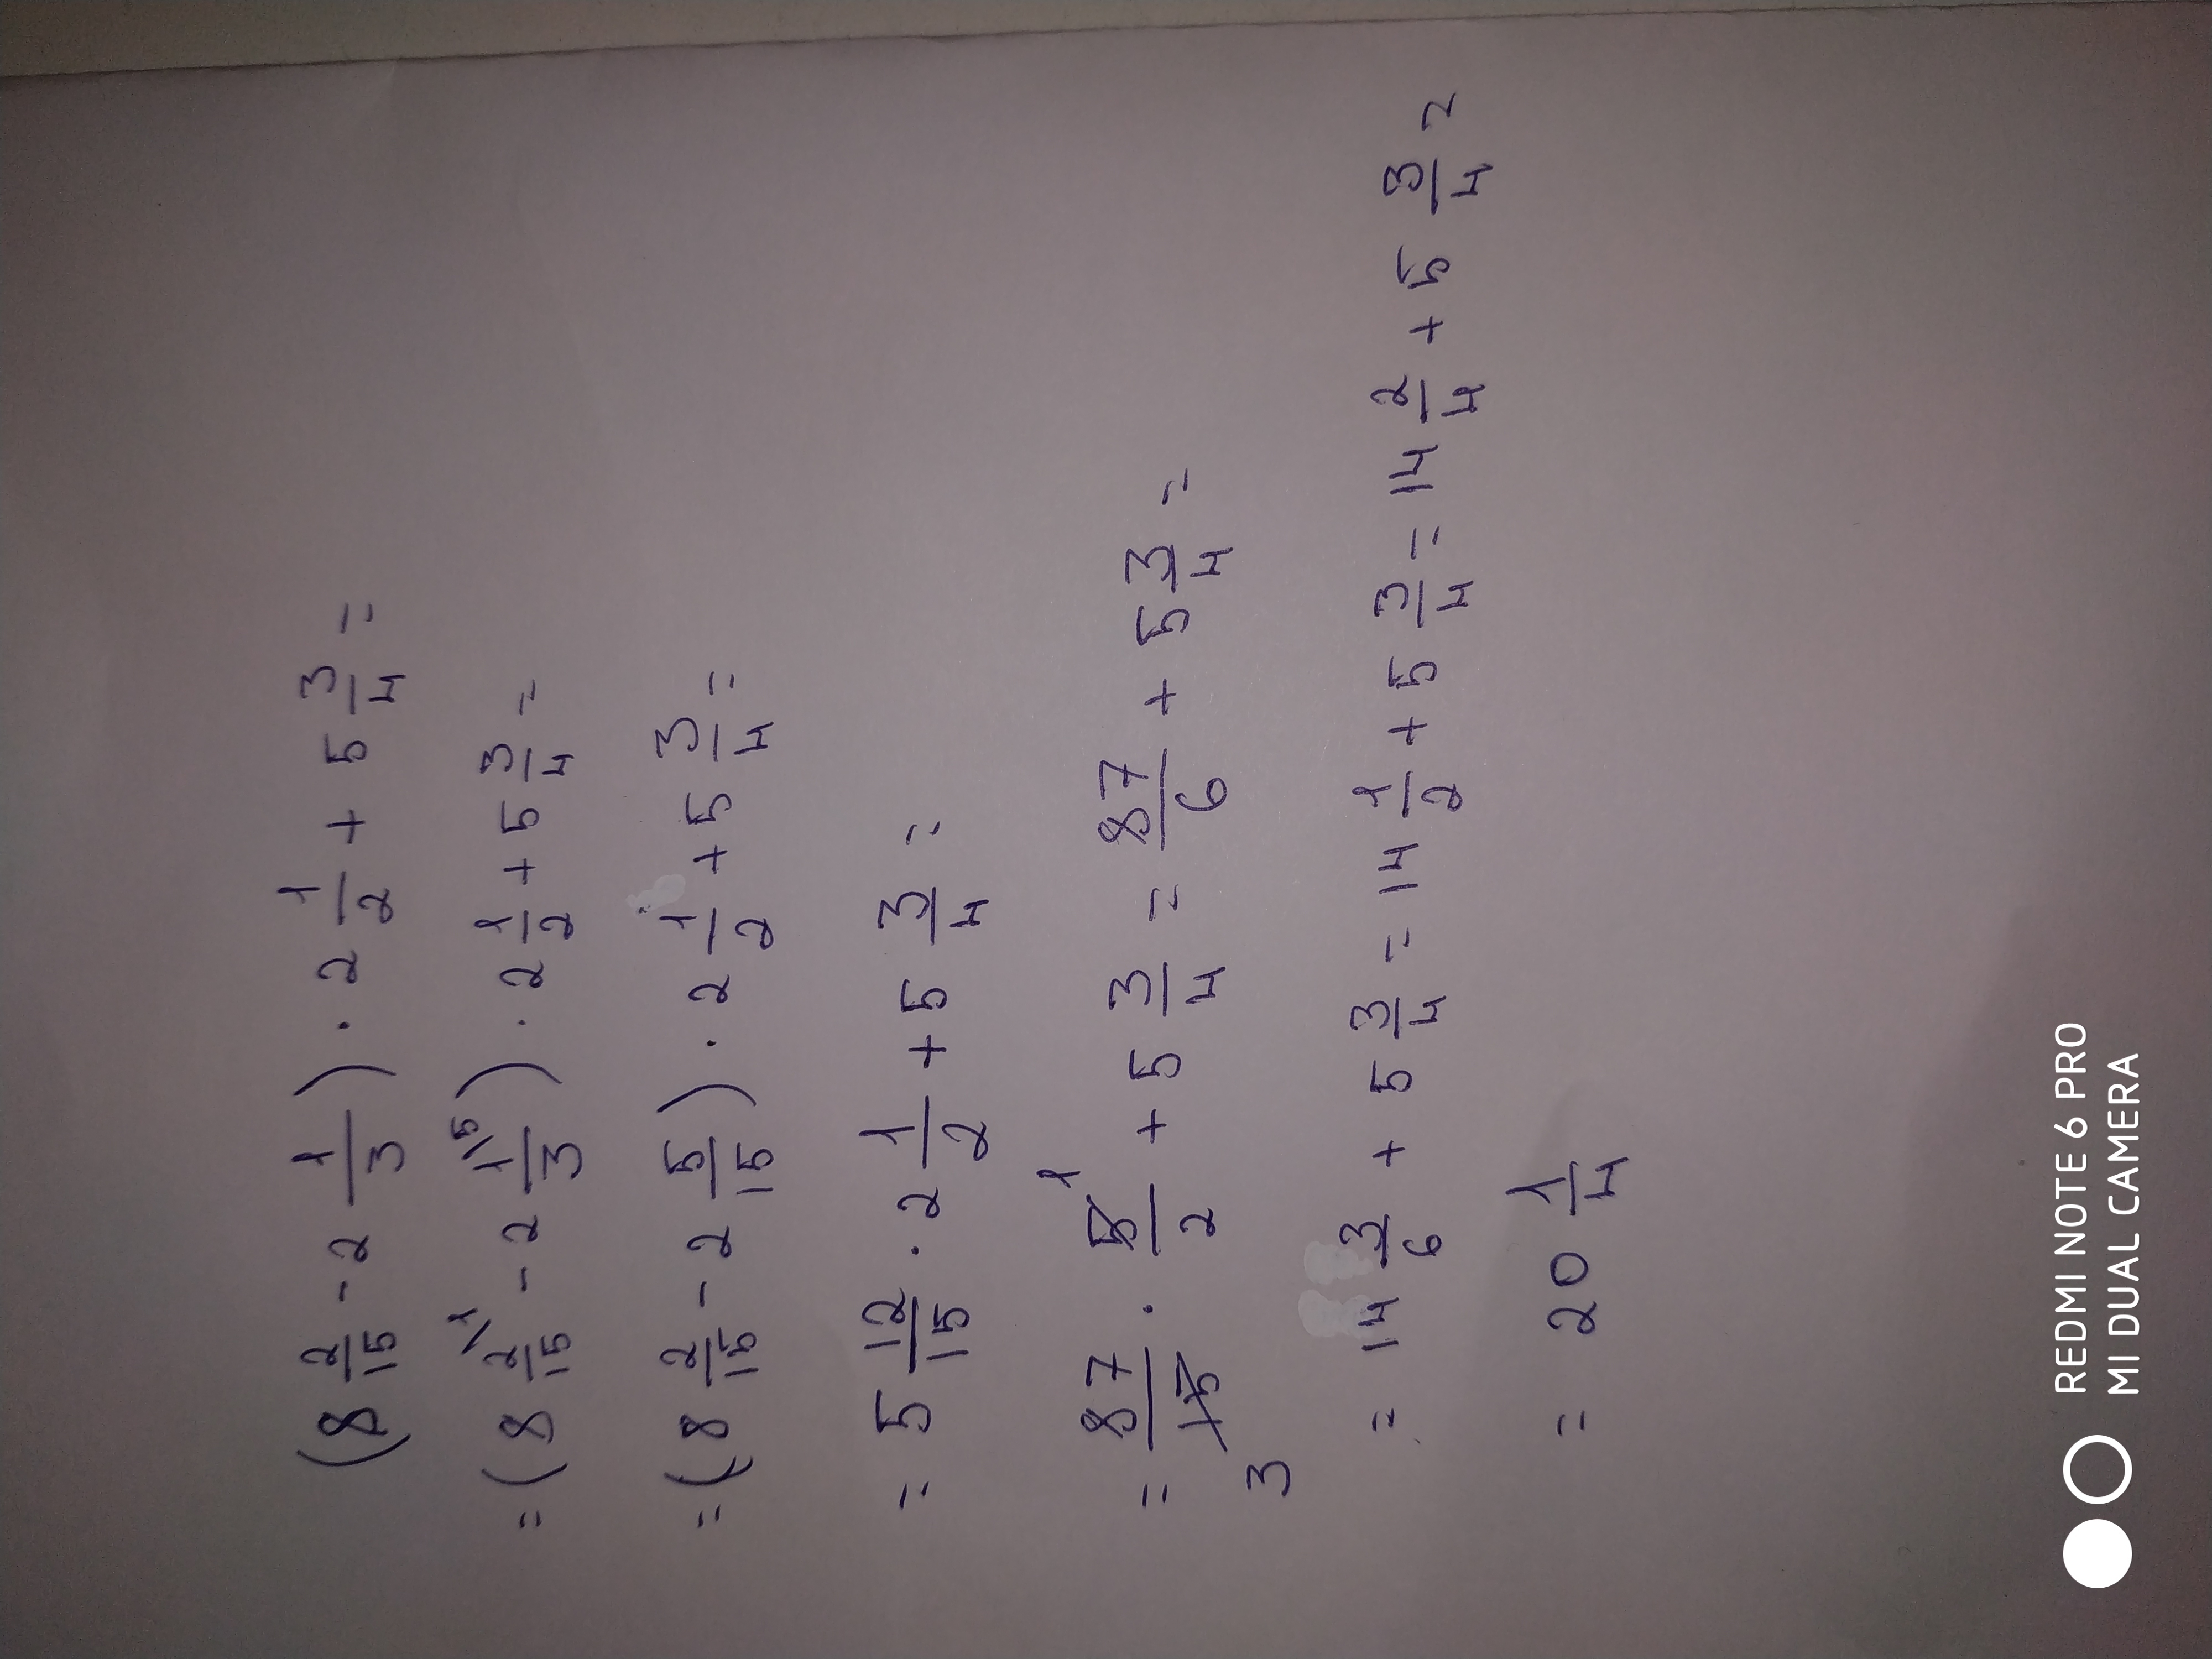 (8 2/15 - 2 1/3) · 2 1/2 + 5 3/4 =
= (8 2/15 \1 - 2 1/3 \5) · 2 1/2 + 5 3/4 =
= (8 2/15 - 2 5/15) · 2 1/2 + 5 3/4 =
= 5 12/15 · 2 1/2 + 5 3/4 =
= 87/15 3 · 5/2 1 + 5 3/4 = 87/6 + 5 3/4 =
= 14 3/6 + 5 3/4 = 14 1/2 + 5 3/4 = 14 2/4 + 5 3/4 =
= 20 1/4
REDMI NOTE 6 PRO
MI DUAL CAMERA